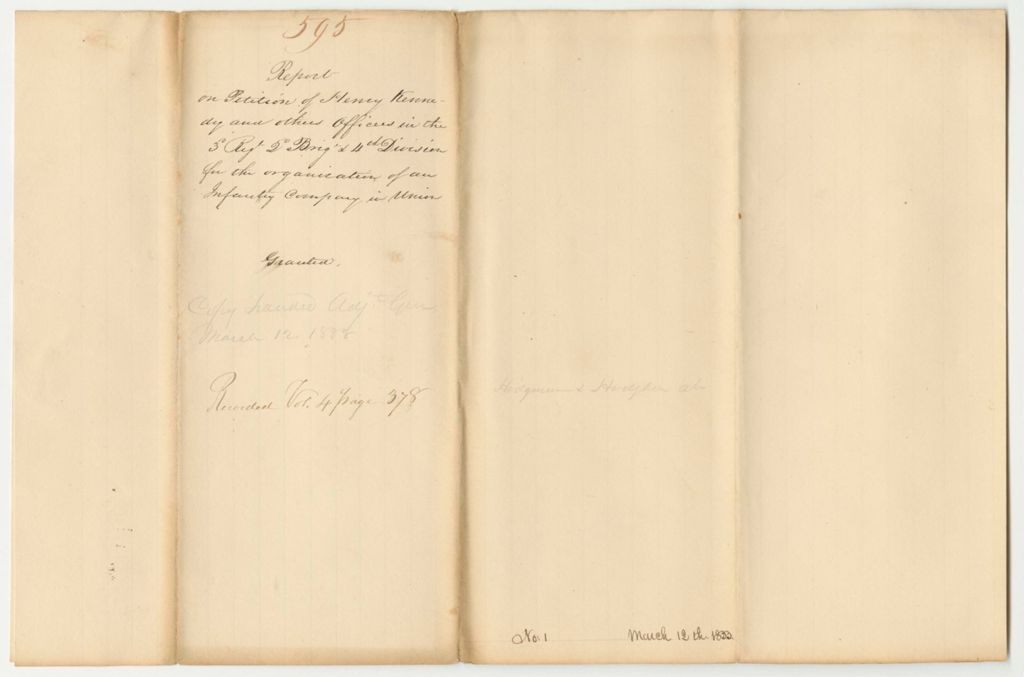 595
Report
on Petition of Henry Kenne-
dy and others Officers in the
5 Regt 2d Brig & 4th Division
for the organization of an
Infantry Company in Union
Granted.
Copy handed Adjt Gen
March 12, 1833
Recorded Vol. 4 page 378
No. 1
March 12th 1833